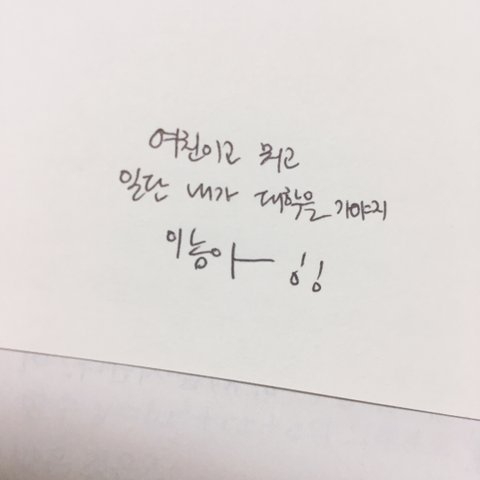 여친이고 뭐고
일단 내가 대학을 가야지
이놈아ㅡ!!